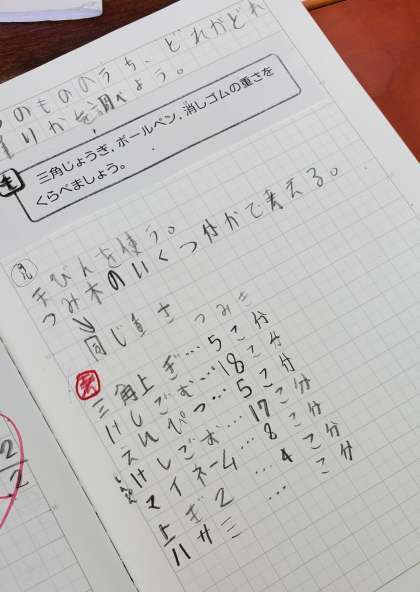 つのもののうち、どれがどれ
よりかを調べよう。
三角じょうぎ、ボールペン、消しゴムの重さを
くらべましょう。
見
天びんを使う。
つみ木のいくつ分かで考える。
同じ重さ つみき
三角上ぎ…5こ分
けしごむ…18こ分
えんぴつ…5こ分
けしごむ…17こ分
マイネーム…8こ分
上ぎ2…4こ分
ハサミ…こ分
2
2